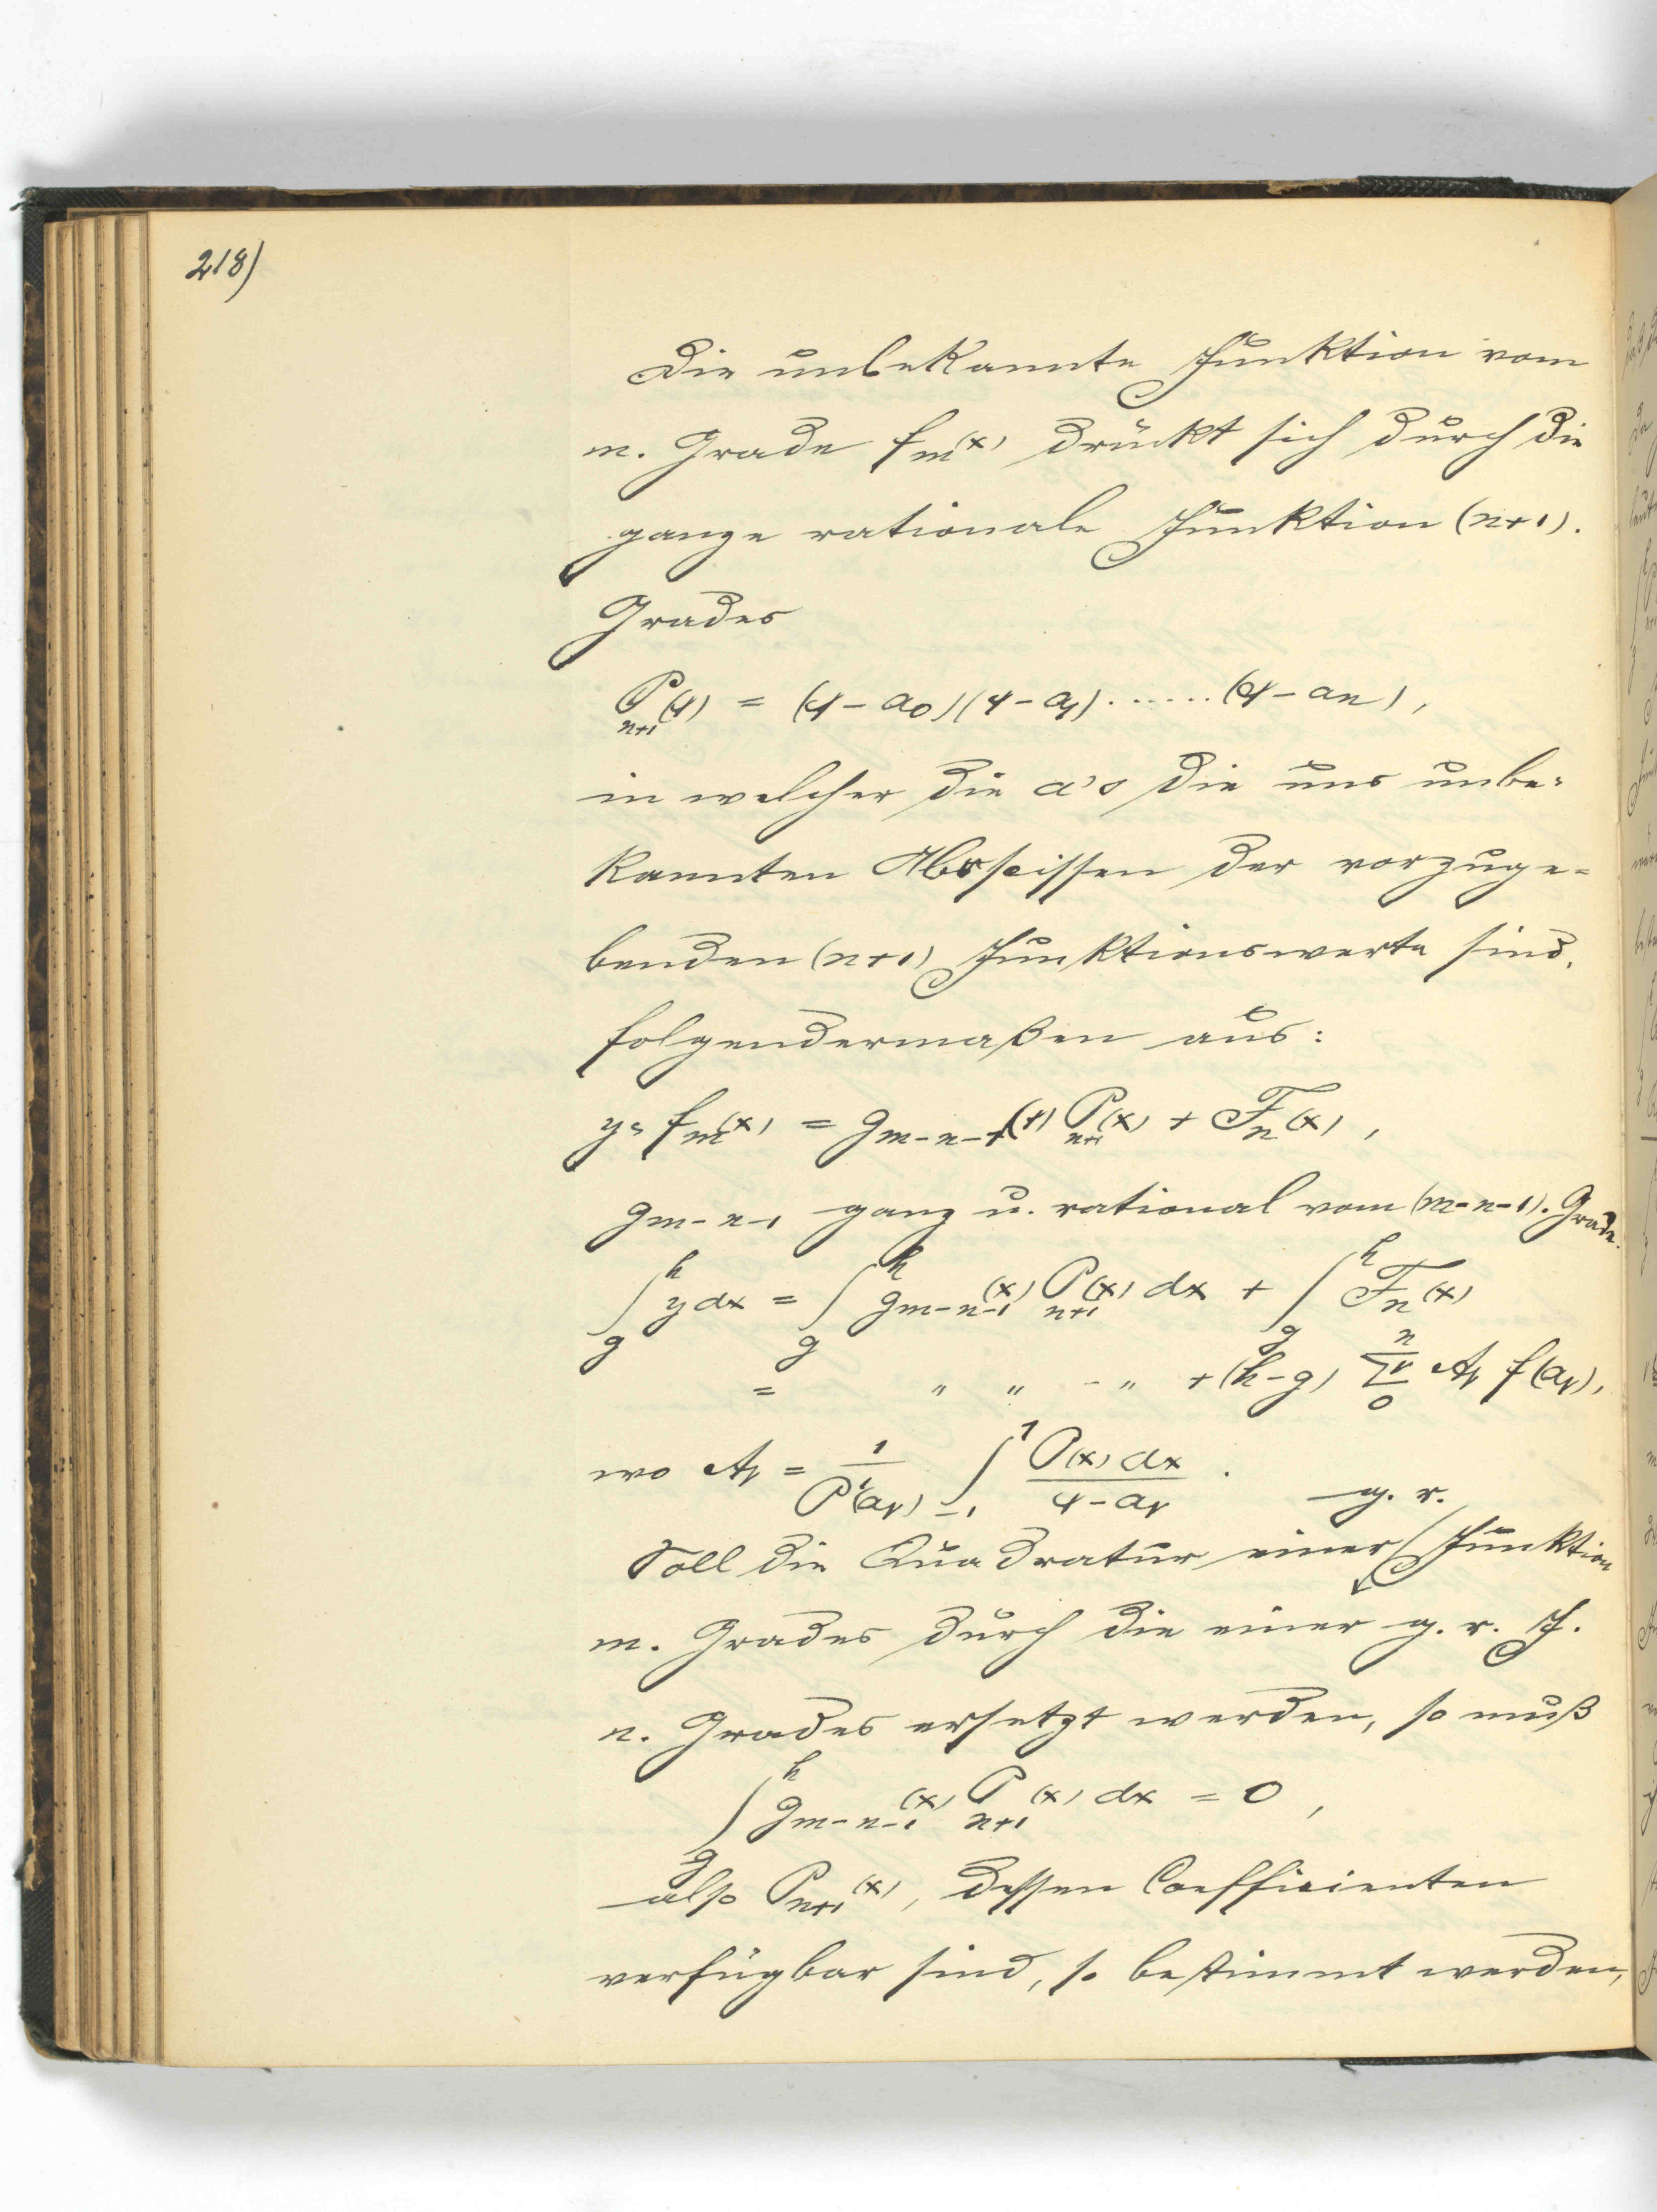 218)
Die unbekannte Funktion vom
m. Grade f_m(x) drückt sich durch die
ganze rationale Funktion (n+1).
Grades
P_{n+1}(x) = (x-a_0)(x-a_1)......(x-a_n),
in welcher die a's die uns unbe-
kannten Abscissen der vorzuge-
benden (n+1) Funktionswerte sind,
folgendermaßen aus:
y = f_m(x) = g_{m-n-1}(x) P_{n+1}(x) + F_n(x),
g_{m-n-1} ganz u. rational vom (m-n-1). Grade.
∫_g^h y dx = ∫_g^h g_{m-n-1}(x) P_{n+1}(x) dx + ∫_g^h F_n(x)
= " " - " + (h-g) Σ_0^n ν A_ν f(a_ν),
wo A_ν = 1/P'(a_ν) ∫_{-1}^1 P(x) dx/(x-a_ν).
Soll die Quadratur einer g. r. Funktion
m. Grades durch die einer g. r. F.
n. Grades ersetzt werden, so muß
∫_g^h g_{m-n-1}(x) P_{n+1}(x) dx = 0,
also P_{n+1}(x), dessen Coefficienten
verfügbar sind, so bestimmt werden,